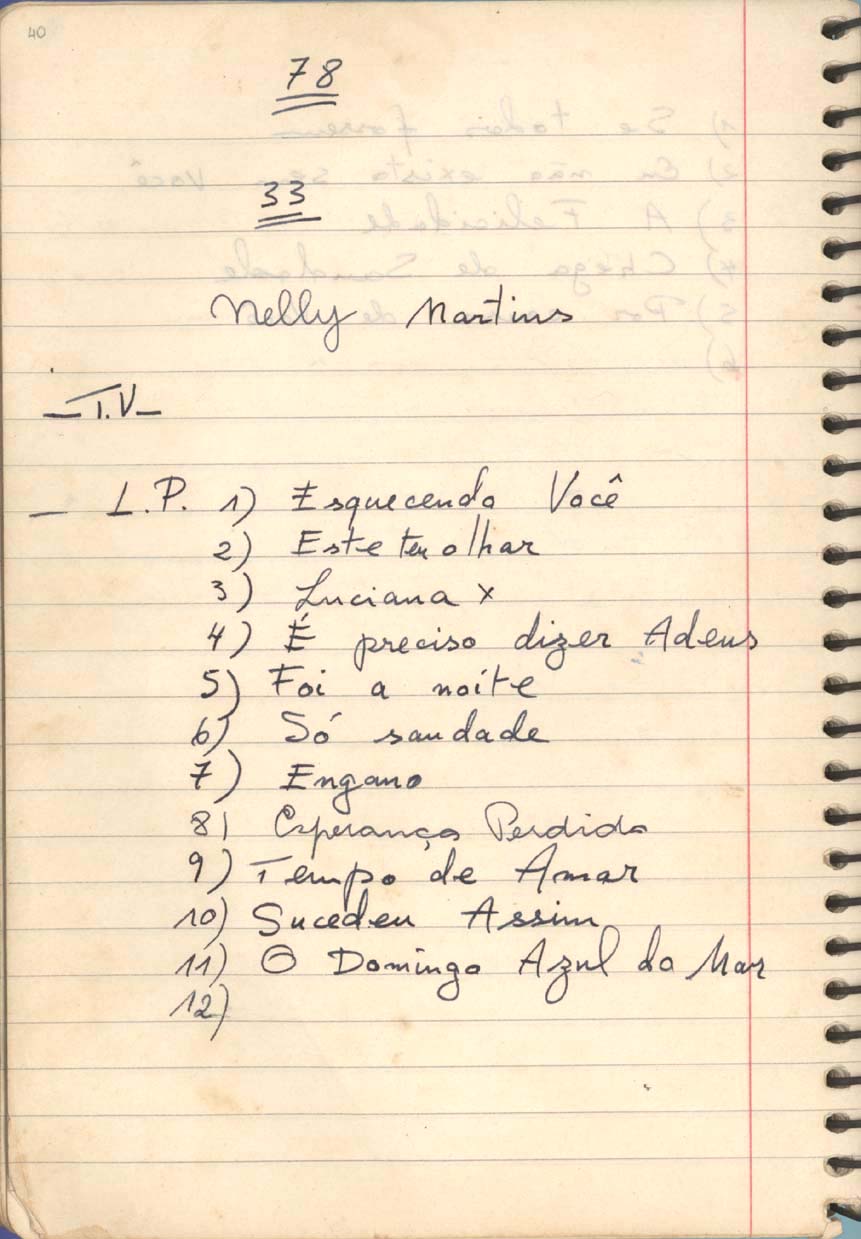 40
78
33
Nelly Martins
— T.V —
— L.P. 1) Esquecendo Você
2) Este teu olhar
3) Luciana x
4) É preciso dizer Adeus
5) Foi a noite
6) Só saudade
7) Engano
8) Esperança Perdida
9) Tempo de Amar
10) Sucedeu Assim
11) O Domingo Azul do Mar
12)